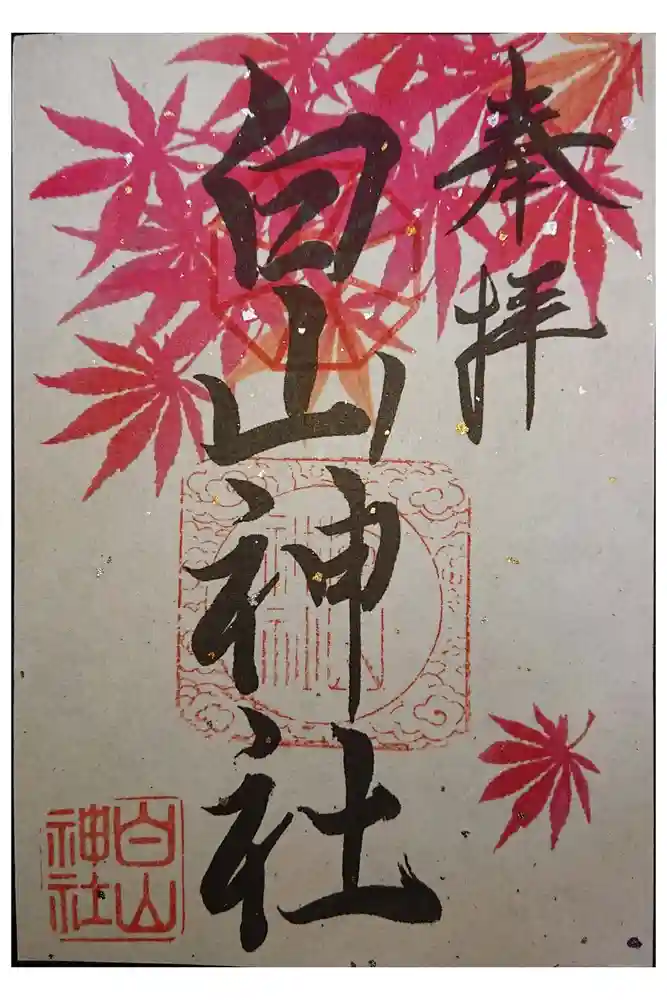 奉拝
白山神社
白山
神社